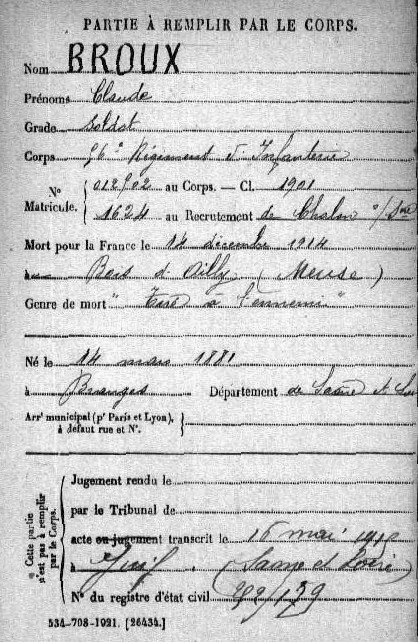 PARTIE À REMPLIR PAR LE CORPS.
Nom BROUX
Prénoms Claude
Grade Soldat
Corps 56e Régiment d'Infanterie
No Matricule. 012902 au Corps. — Cl. 1901
1624 au Recrutement de Chalon s/ Sne
Mort pour la France le 14 décembre 1914
à Bois d'Ailly (Meuse)
Genre de mort "Tué à l'ennemi"
Né le 14 mars 1881
à Branges Département de Saône et Loire
Arrt municipal (pr Paris et Lyon), à défaut rue et No.
* Cette partie n'est pas à remplir par le Corps.
Jugement rendu le
par le Tribunal de
acte ou jugement transcrit le 16 mai
à Juif (Saône et Loire)
No du registre d'état civil
534-708-1921. [26434.]